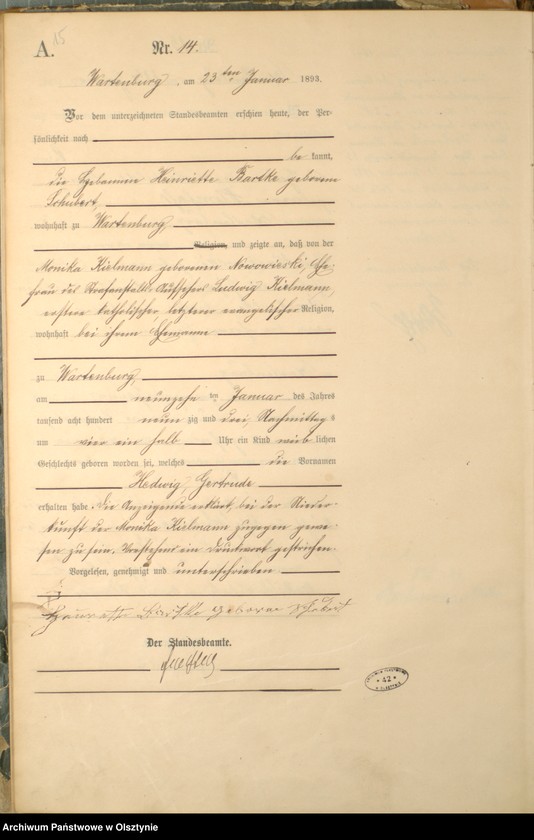 15
A.
Nr. 14.
Wartenburg, am 23ten Januar 1893.
Vor dem unterzeichneten Standesbeamten erschien heute, der Per-
sönlichkeit nach
bekannt,
die Hebamme Heinriette Bartke geborene
Schubert,
wohnhaft zu Wartenburg,
Religion, und zeigte an, daß von der
Monika Kielmann geborenen Nowowieski, Ehe-
frau des Strafanstalts-Aufsehers Ludwig Kielmann,
erstere katholischer letzterer evangelischer Religion,
wohnhaft bei ihrem Ehemanne
zu Wartenburg,
am neunzehn ten Januar des Jahres
tausend acht hundert neunzig und drei, Nachmittags
um vier ein halb Uhr ein Kind weiblichen
Geschlechts geboren worden sei, welches die Vornamen
Hedwig, Gertrude
erhalten habe. Die Anzeigende erklärt, bei der Nieder-
kunft der Monika Kielmann zugegen gewe-
sen zu sein. Vorstehend ein Druckwort gestrichen.
Vorgelesen, genehmigt und unterschrieben
geborne Schubert
Der Standesbeamte.
* 42 *
Archiwum Państwowe w Olsztynie